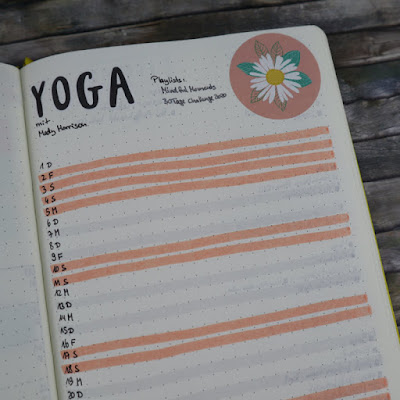 YOGA
mit
Mady Morrison
Playlists:
Mindful Moments
30 Tage Challenge 2020
1 D
2 F
3 S
4 S
5 M
6 D
7 M
8 D
9 F
10 S
11 S
12 M
13 D
14 M
15 D
16 F
17 S
18 S
19 M
20 D